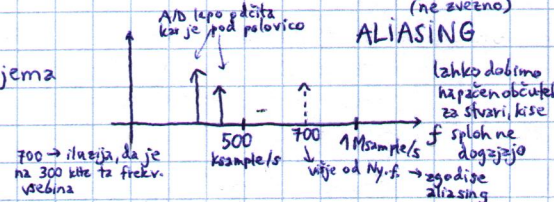 (ne zvezno)
A/D lepo odčita
kar je pod polovico
ALIASING
jema
lahko dobimo
napačen občutek
za stvari, ki se
sploh ne
dogajajo
500
ksample/s
700
1 Msample/s
f
700 → iluzija, da je
na 300 kHz ta frekv.
vsebina
višje od Ny.f. → zgodi se
aliasing